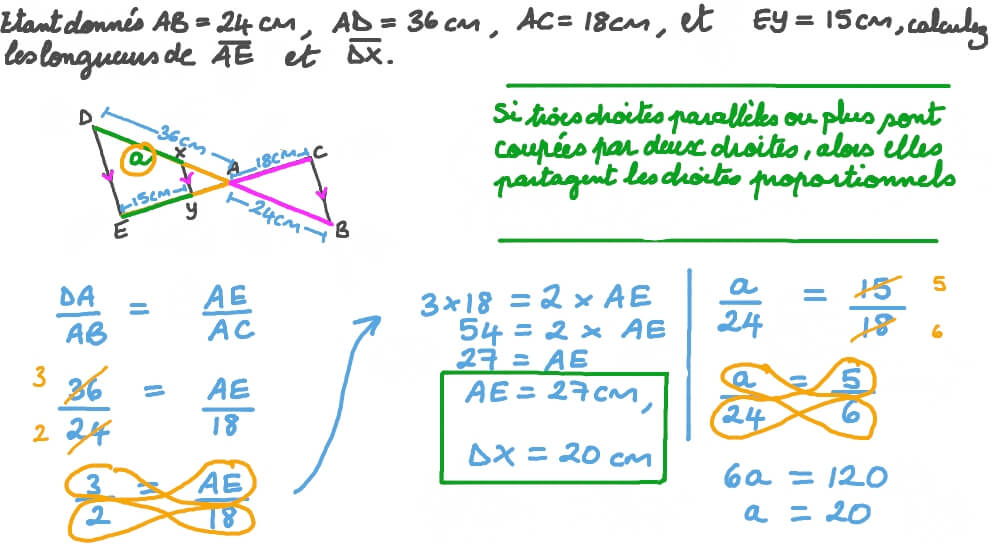 Etant donnés AB = 24 cm, AD = 36 cm, AC = 18cm, et EY = 15cm, calculez
les longueurs de AE et DX.
Si trois droites parallèles ou plus sont
coupées par deux droites, alors elles
partagent les droites proportionnels
D
36cm
a
x
A
18cm
C
15cm
y
E
24cm
B
DA/AB = AE/AC
36/24 = AE/18
3
2
3/2 = AE/18
3×18 = 2 × AE
54 = 2 × AE
27 = AE
AE = 27cm,
DX = 20 cm
a/24 = 15/18
5
6
a/24 = 5/6
6a = 120
a = 20